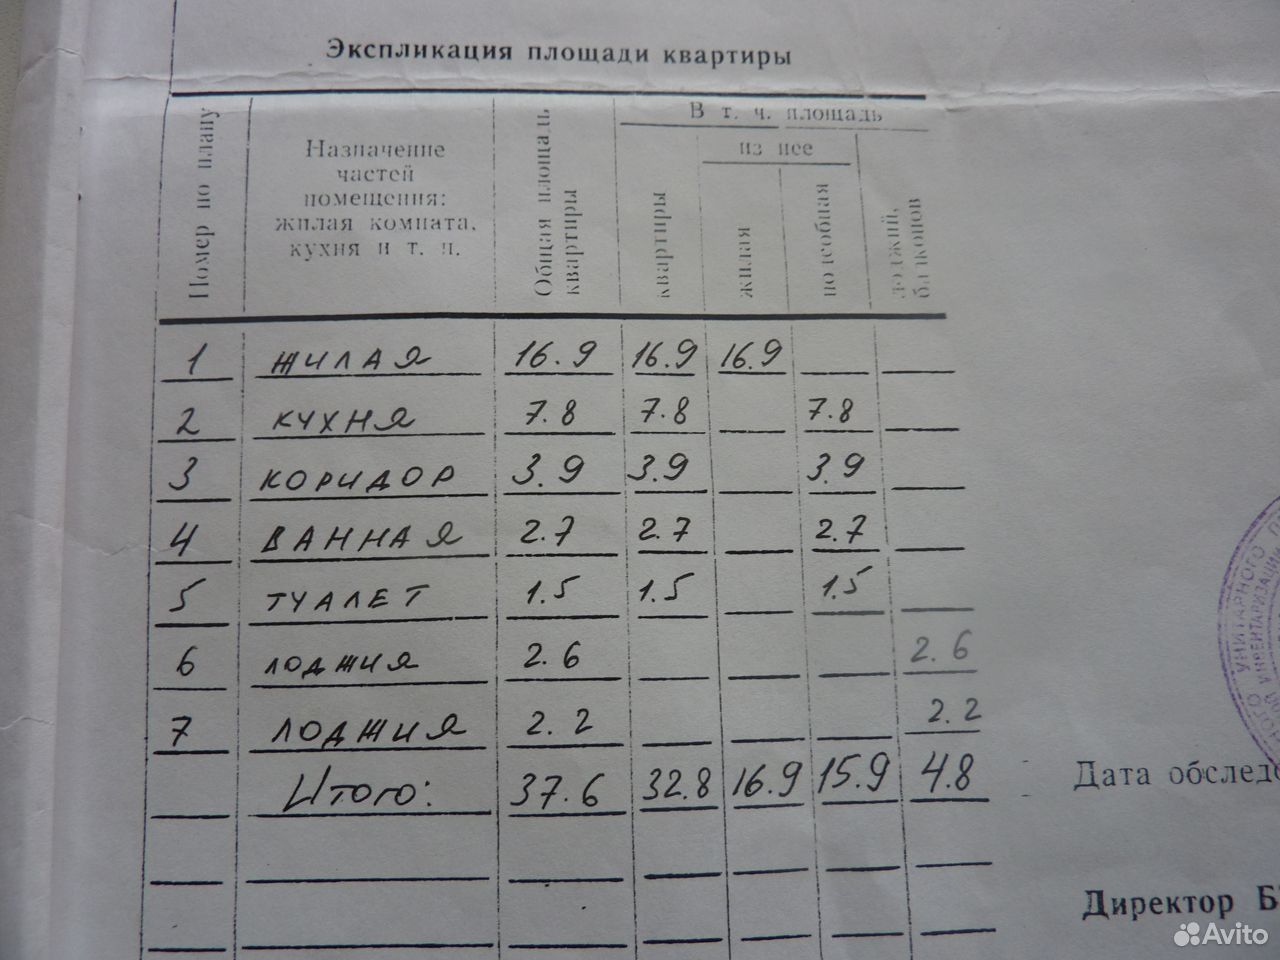 Экспликация площади квартиры
Номер по плану
Назначение
частей
помещения:
жилая комната,
кухня и т. п.
Общая площадь
квартиры
В т. ч. площадь
квартиры
из нее
жилая
подсобная
лоджий,
балконов
1 ЖИЛАЯ 16.9 16.9 16.9
2 КУХНЯ 7.8 7.8 7.8
3 КОРИДОР 3.9 3.9 3.9
4 ВАННАЯ 2.7 2.7 2.7
5 ТУАЛЕТ 1.5 1.5 1.5
6 ЛОДЖИЯ 2.6 2.6
7 ЛОДЖИЯ 2.2 2.2
Итого: 37.6 32.8 16.9 15.9 4.8
УНИТАРНОГО
Дата обследо
Директор Б
Avito